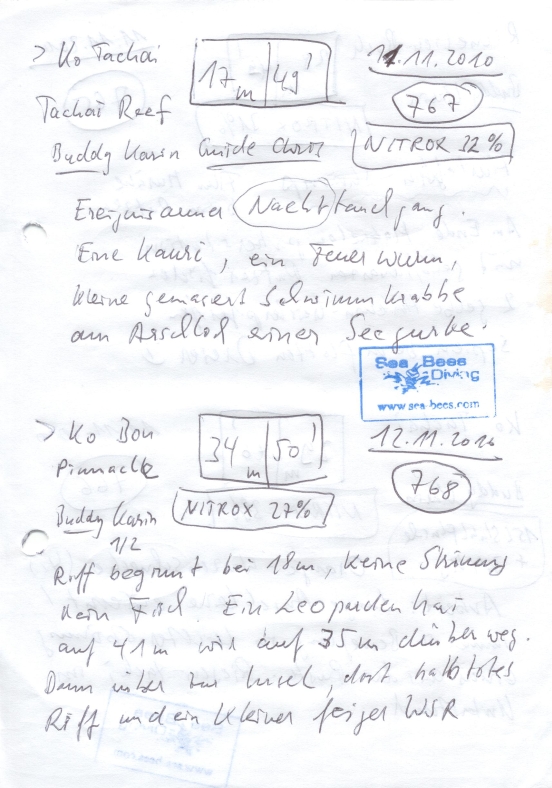 > Ko Tachai 17m 49' 11.11.2010
Tachai Reef 767
Buddy Karin Guide Chris NITROX 32%
Ereignisarmer Nachttauchgang.
Eine Kauri, ein Feuerwurm,
kleine gemasert Schwimmkrabbe
am Arschloch einer Seegurke.
Sea Bees
Diving
www.sea-bees.com
> Ko Bon 34m 50' 12.11.2010
Pinnacle 768
Buddy Karin NITROX 27%
1/2
Riff beginnt bei 18m, keine Strömung
kein Fisch. Ein Leopardenhai
auf 41m wir auf 35m drüber weg.
Dann rüber zur Insel, dort halbtotes
Riff und ein kleiner feiger WSR